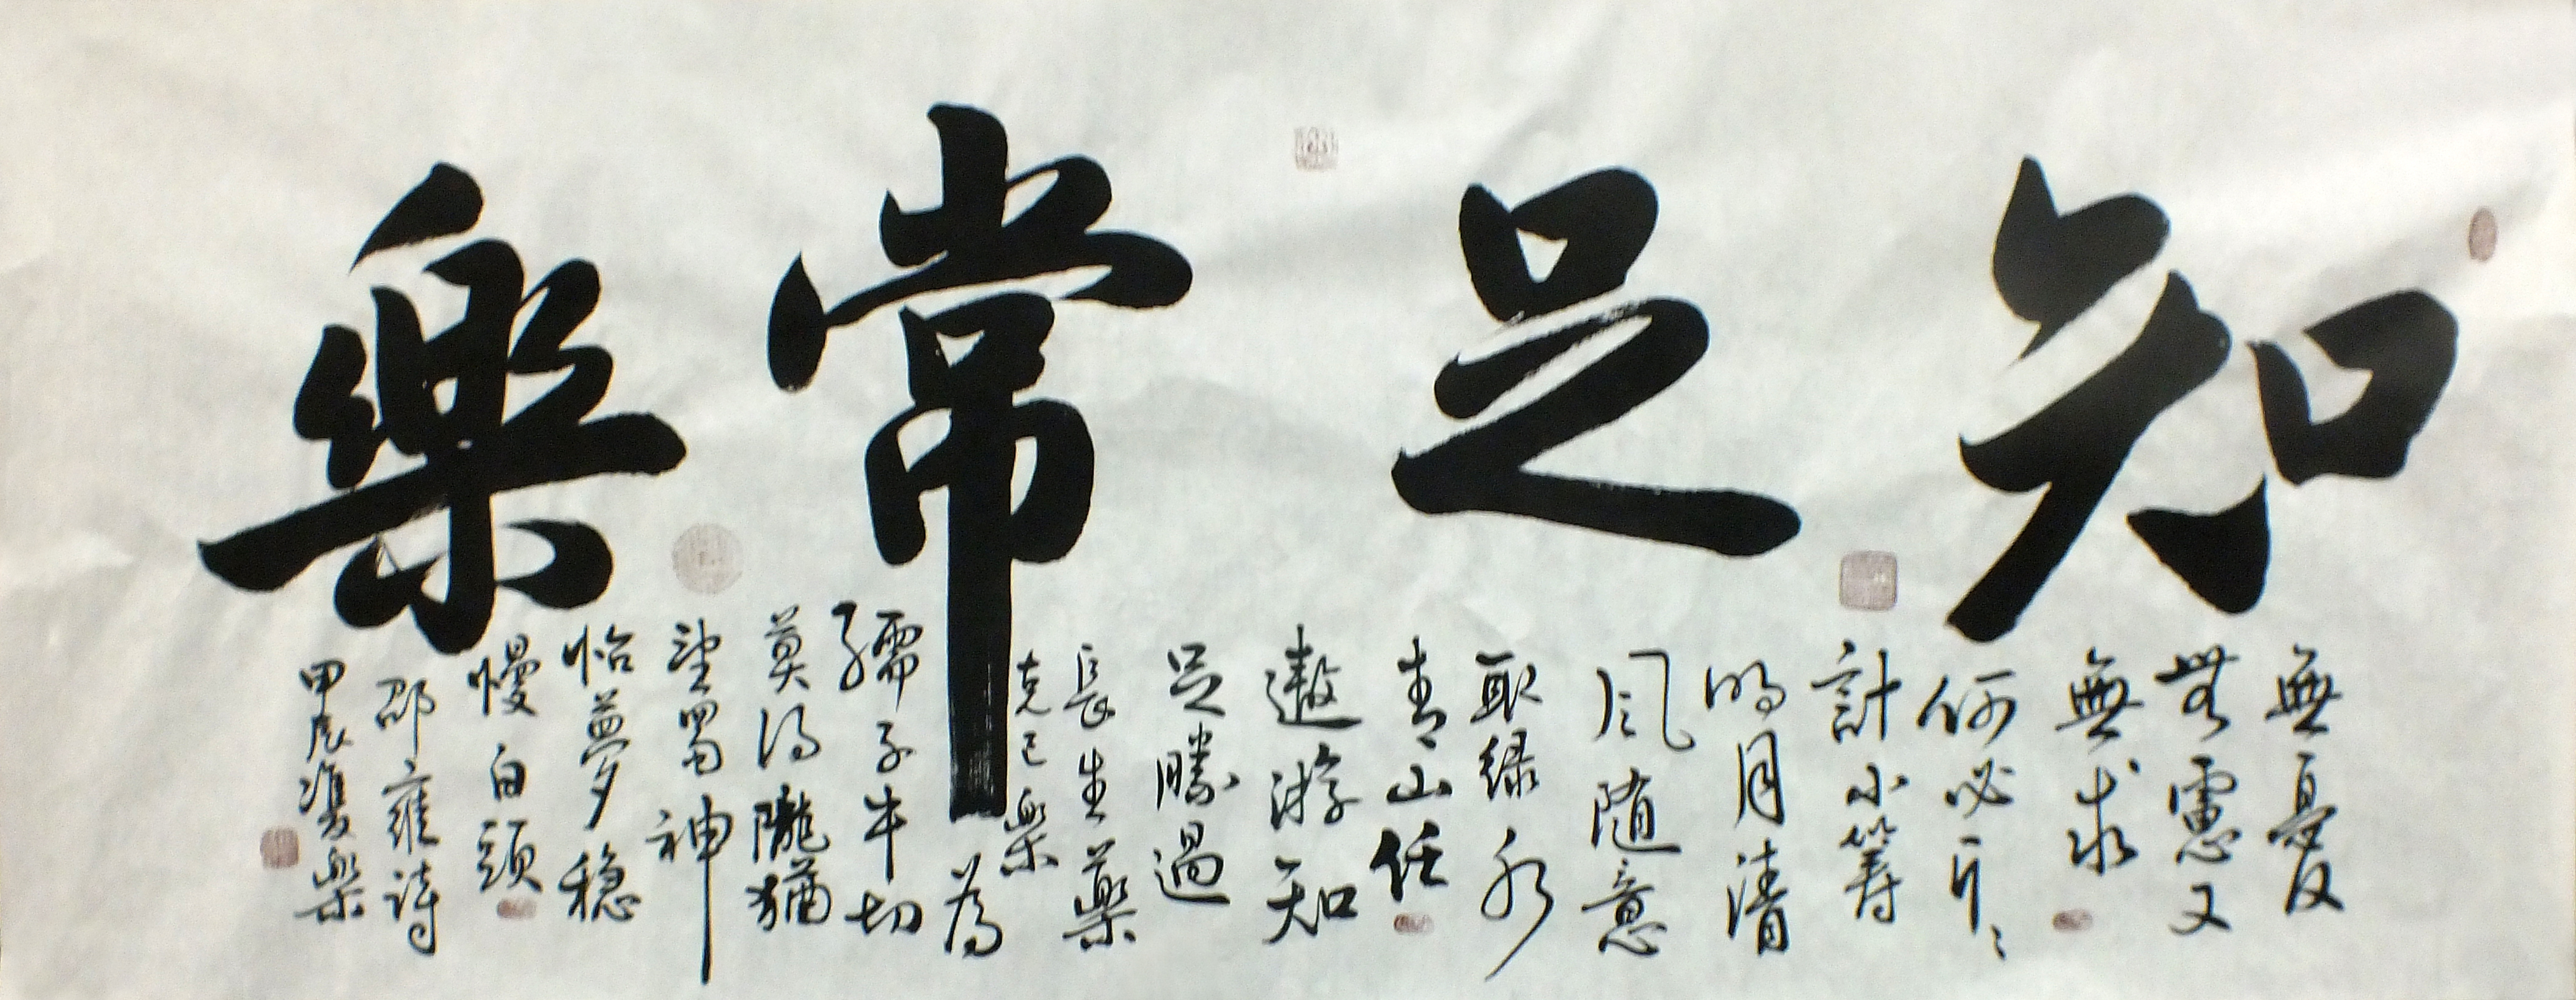 知足常樂
無憂
無慮又
無求
何必斤斤
計小籌
明月清
風隨意
取綠水
青山任
遨游知
足勝過
長生藥
克己樂
為
孺子牛切
莫得隴猶
望蜀神
怡夢穩
慢白頭
邵雍詩
甲辰
樂